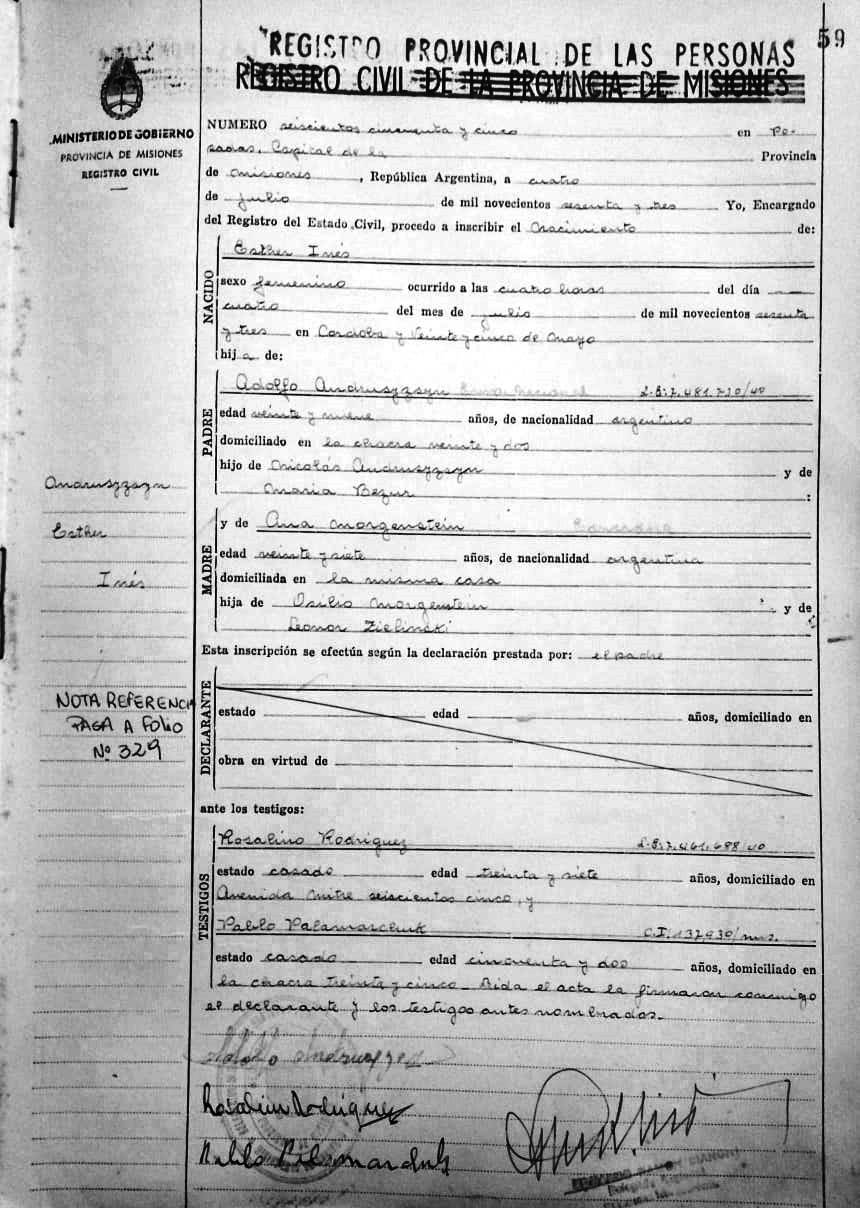 59
REGISTRO PROVINCIAL DE LAS PERSONAS
REGISTRO CIVIL DE LA PROVINCIA DE MISIONES
MINISTERIO DE GOBIERNO
PROVINCIA DE MISIONES
REGISTRO CIVIL
NUMERO seiscientos cincuenta y cinco en Po-
sadas, Capital de la Provincia
de Misiones, República Argentina, a cuatro
de julio de mil novecientos sesenta y tres Yo, Encargado
del Registro del Estado Civil, procedo a inscribir el Nacimiento de:
NACIDO
Esther Inés
sexo femenino ocurrido a las cuatro horas del día
cuatro del mes de julio de mil novecientos sesenta
y tres en Cordoba y Veinte y cinco de Mayo
hija de:
PADRE
Adolfo Andrusyzsyn L.E. 7.481.730/40
edad veinte y nueve años, de nacionalidad argentino
domiciliado en la chacra veinte y dos
hijo de Nicolás Andrusyzsyn y de
Maria Bezur :
MADRE
y de Ana Morgenstein
edad veinte y siete años, de nacionalidad argentina
domiciliada en la misma casa
hija de Osilio Morgenstein y de
Leonor Zielinski
Andrusyzsyn
Esther
Inés
Esta inscripción se efectúa según la declaración prestada por: el padre
NOTA REFERENCIA
PASA A FOLIO
Nº 329
DECLARANTE
estado edad años, domiciliado en
obra en virtud de
ante los testigos:
TESTIGOS
Rosalino Rodriguez L.E. 7.461.698/40
estado casado edad treinta y siete años, domiciliado en
Avenida Mitre seiscientos cinco, y
Pablo Palamarchuk C.I. 137.930/mns.
estado casado edad cincuenta y dos años, domiciliado en
la chacra treinta y cinco. Leida el acta la firmaron conmigo
el declarante y los testigos antes nombrados.
Rosalino Rodriguez